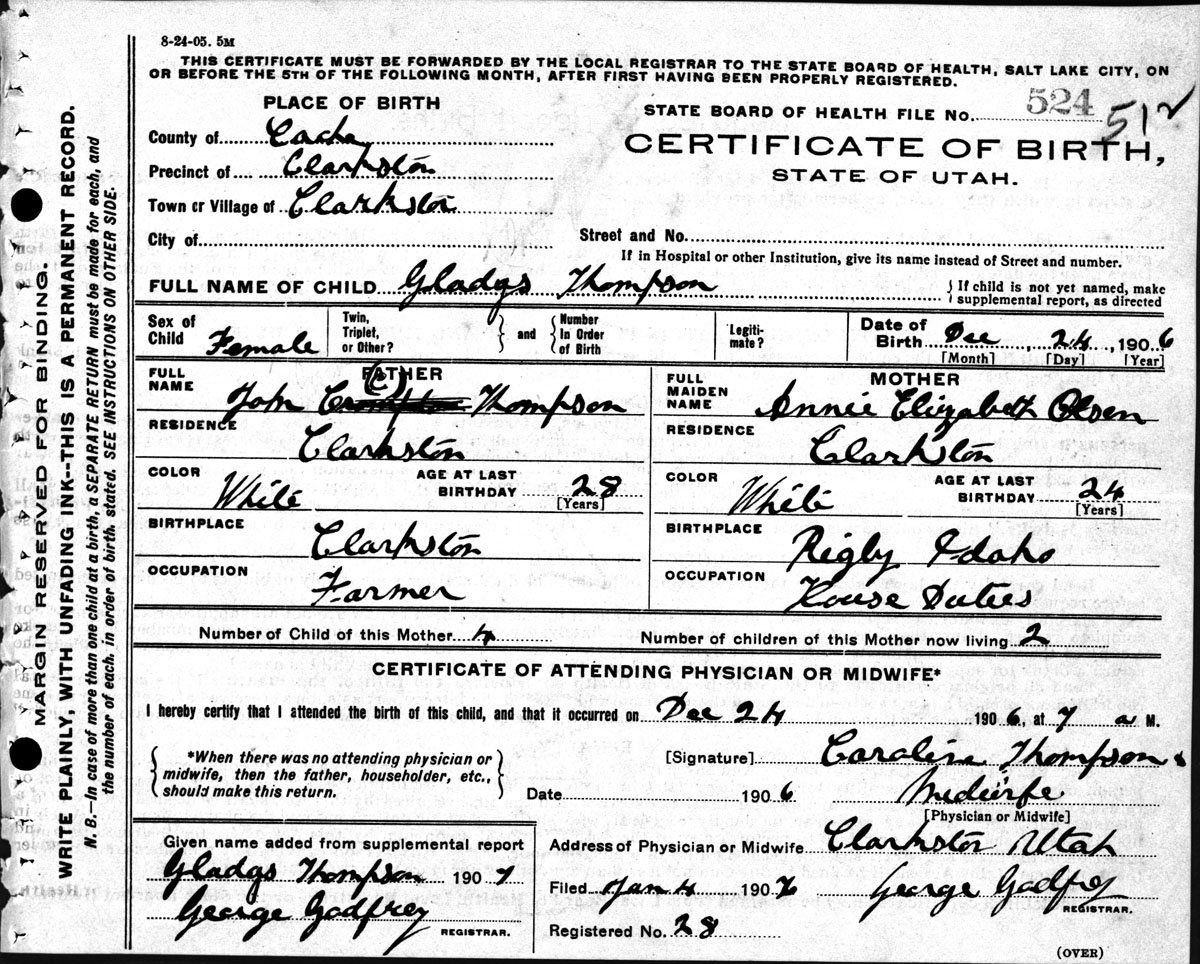 8-24-05. 5M
THIS CERTIFICATE MUST BE FORWARDED BY THE LOCAL REGISTRAR TO THE STATE BOARD OF HEALTH, SALT LAKE CITY, ON
OR BEFORE THE 5TH OF THE FOLLOWING MONTH, AFTER FIRST HAVING BEEN PROPERLY REGISTERED.
MARGIN RESERVED FOR BINDING.
WRITE PLAINLY, WITH UNFADING INK--THIS IS A PERMANENT RECORD.
N. B.—In case of more than one child at a birth, a SEPARATE RETURN must be made for each, and
the number of each, in order of birth, stated. SEE INSTRUCTIONS ON OTHER SIDE.
PLACE OF BIRTH
STATE BOARD OF HEALTH FILE No. 524 512
CERTIFICATE OF BIRTH,
STATE OF UTAH.
County of Cache
Precinct of Clarkston
Town or Village of Clarkston
City of Street and No.
If in Hospital or other Institution, give its name instead of Street and number.
FULL NAME OF CHILD Gladys Thompson { If child is not yet named, make
supplemental report, as directed
Sex of Child Female Twin, Triplet, or Other? } and { Number In Order of Birth Legitimate? Date of Birth Dec, 24, 1906
[Month] [Day] [Year]
FATHER MOTHER
FULL NAME John (C) Crompton Thompson FULL MAIDEN NAME Annie Elizabeth Olsen
RESIDENCE Clarkston RESIDENCE Clarkston
COLOR White AGE AT LAST BIRTHDAY 28 [Years] COLOR White AGE AT LAST BIRTHDAY 24 [Years]
BIRTHPLACE Clarkston BIRTHPLACE Rigby Idaho
OCCUPATION Farmer OCCUPATION House Duties
Number of Child of this Mother 4 Number of children of this Mother now living 2
CERTIFICATE OF ATTENDING PHYSICIAN OR MIDWIFE*
I hereby certify that I attended the birth of this child, and that it occurred on Dec 24 1906, at 7 a M.
{ *When there was no attending physician or
midwife, then the father, householder, etc.,
should make this return. }
[Signature] Caroline Thompson
Date 1906 Midwife
[Physician or Midwife]
Given name added from supplemental report
Gladys Thompson 1907
George Godfrey
REGISTRAR.
Address of Physician or Midwife Clarkston Utah
Filed Jan 4 1906 George Godfrey
REGISTRAR.
Registered No. 28
(OVER)